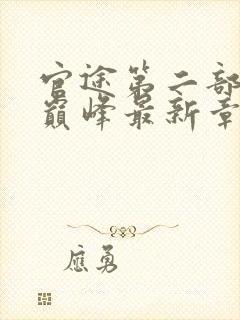 官途第二部
巅峰最新章
应勇